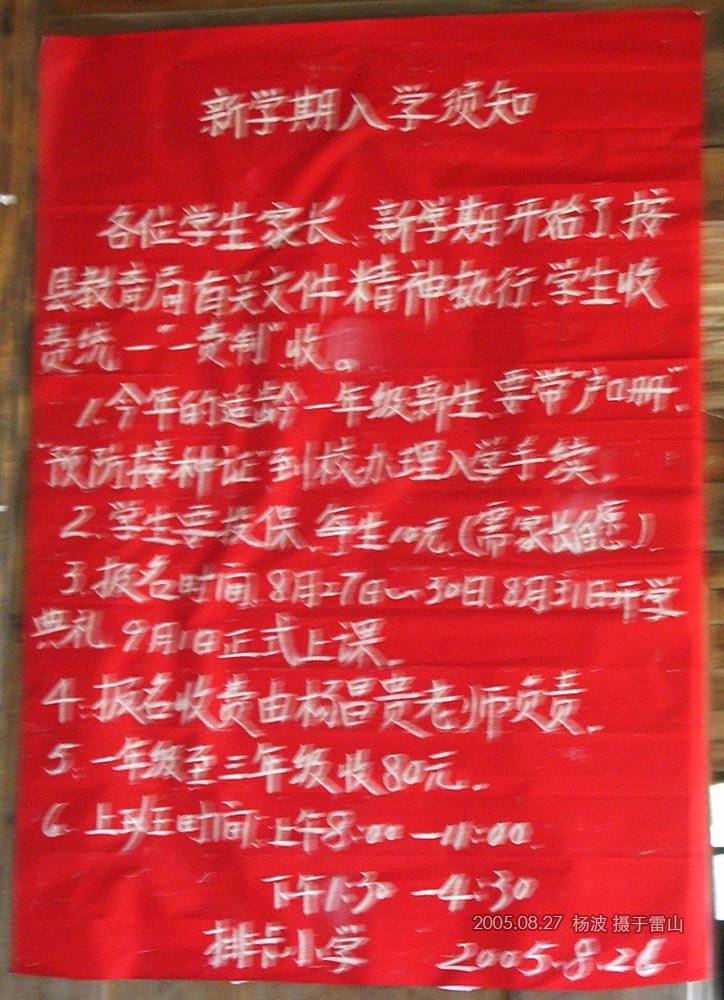 新学期入学须知
各位学生家长、新学期开始了、按
县教育局有关文件精神执行、学生收
费统一"一费制"收。
1、今年的适龄一年级新生、要带"户口册"、
"预防接种证"到校办理入学手续。
2、学生要投保、每生10元、(需家长自愿)
3、报名时间、8月27日~30日、8月31日开学
典礼、9月1日正式上课。
4、报名收费由杨昌贵老师负责。
5、一年级至三年级收80元。
6、上班时间:上午8:00—11:00
下午1:30—4:30
排卡小学 2005.8.26
2005.08.27 杨波 摄于雷山